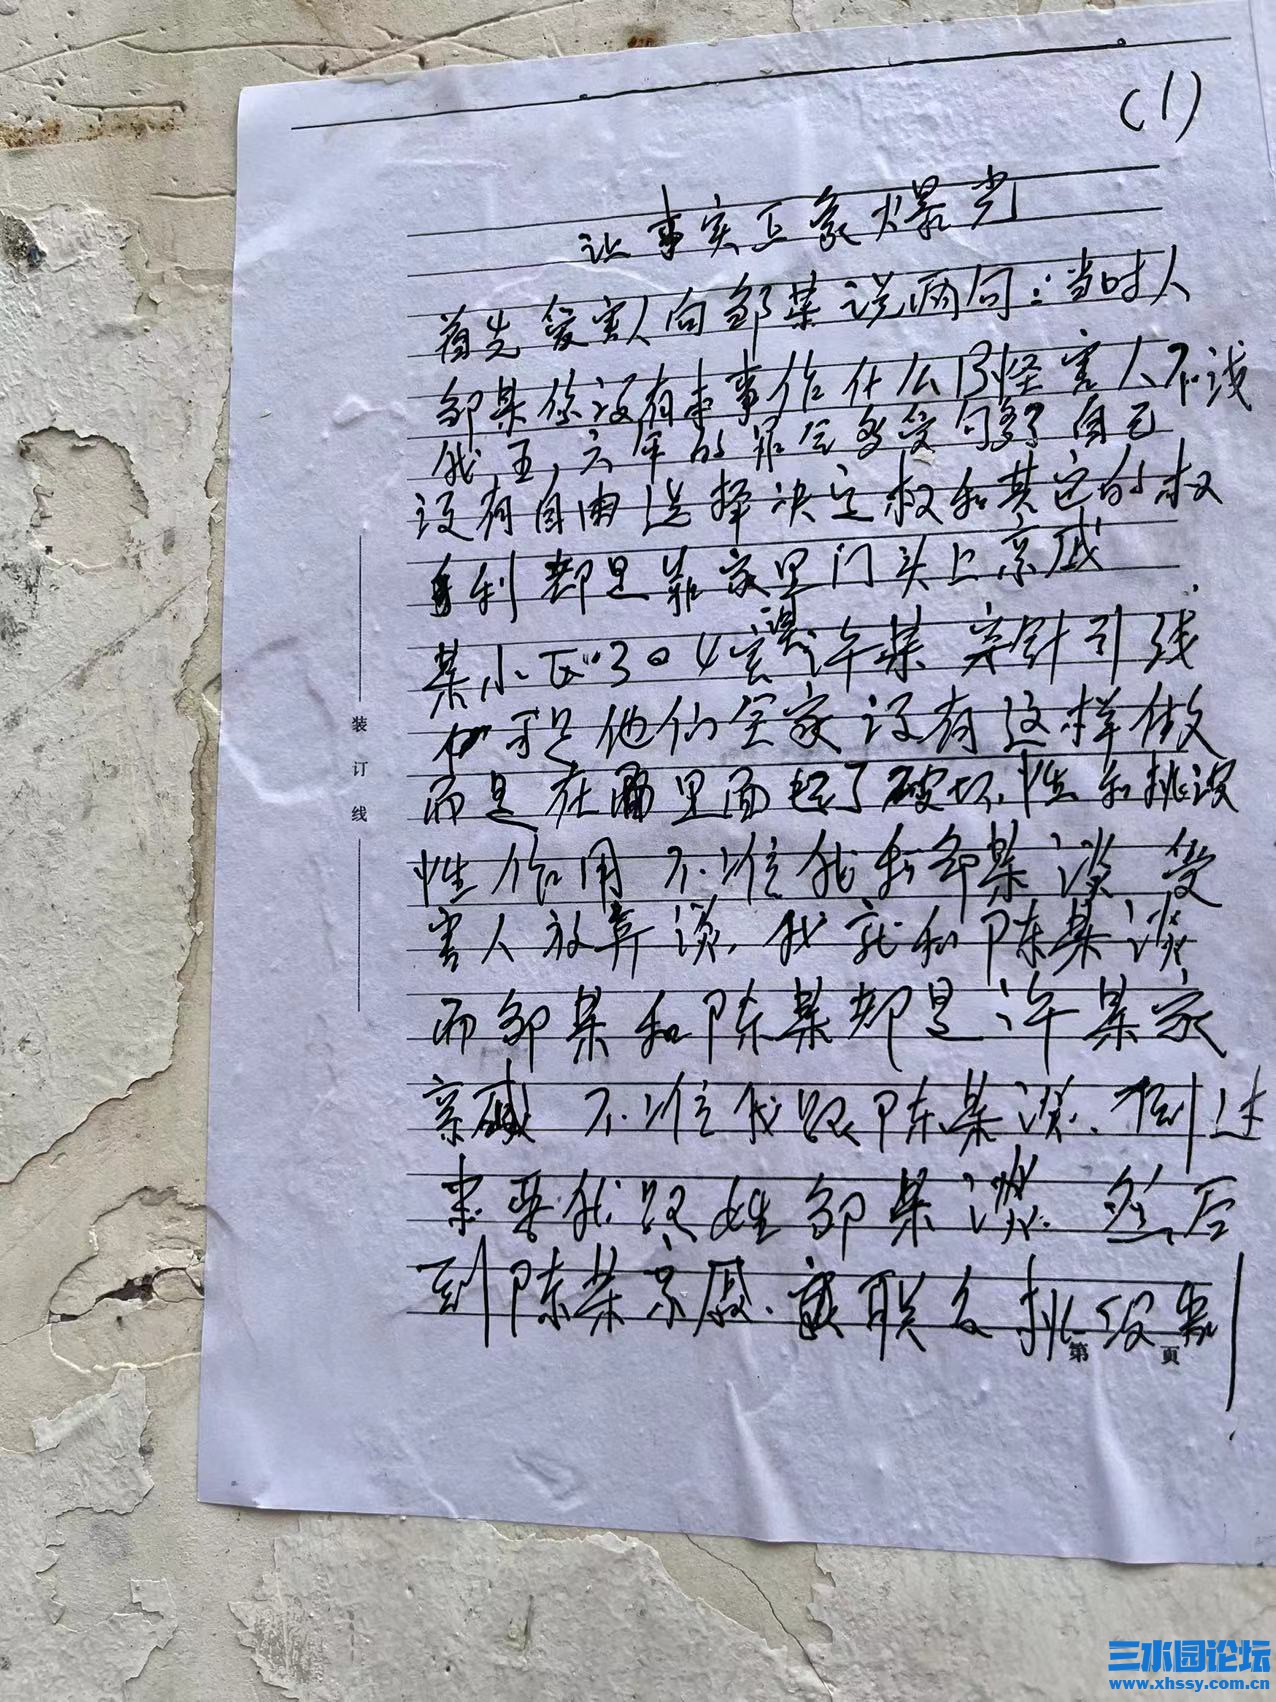 (1)
让事实正象爆光
首先受害人向邹某说两句：当时人
邹某你没有本事作什么 怪害人不浅
我五，六年的罪 受 够了自己
没有自由选择决定权和其它的权
利都是靠家里门头上亲戚
某小区304室 许某穿针引线
可是他们全家没有这样做
而是在里面起了破坏性和挑误
性作用不准我和邹某谈受
害人放弃谈，我就和陈某谈
而邹某和陈某都是许某家
亲戚不准我跟陈某谈，倒过
来要我跟姓邹某谈．然后
到陈某亲戚． 联众挑 
装订线
第 页
三水园论坛
www.xhssy.com.cn